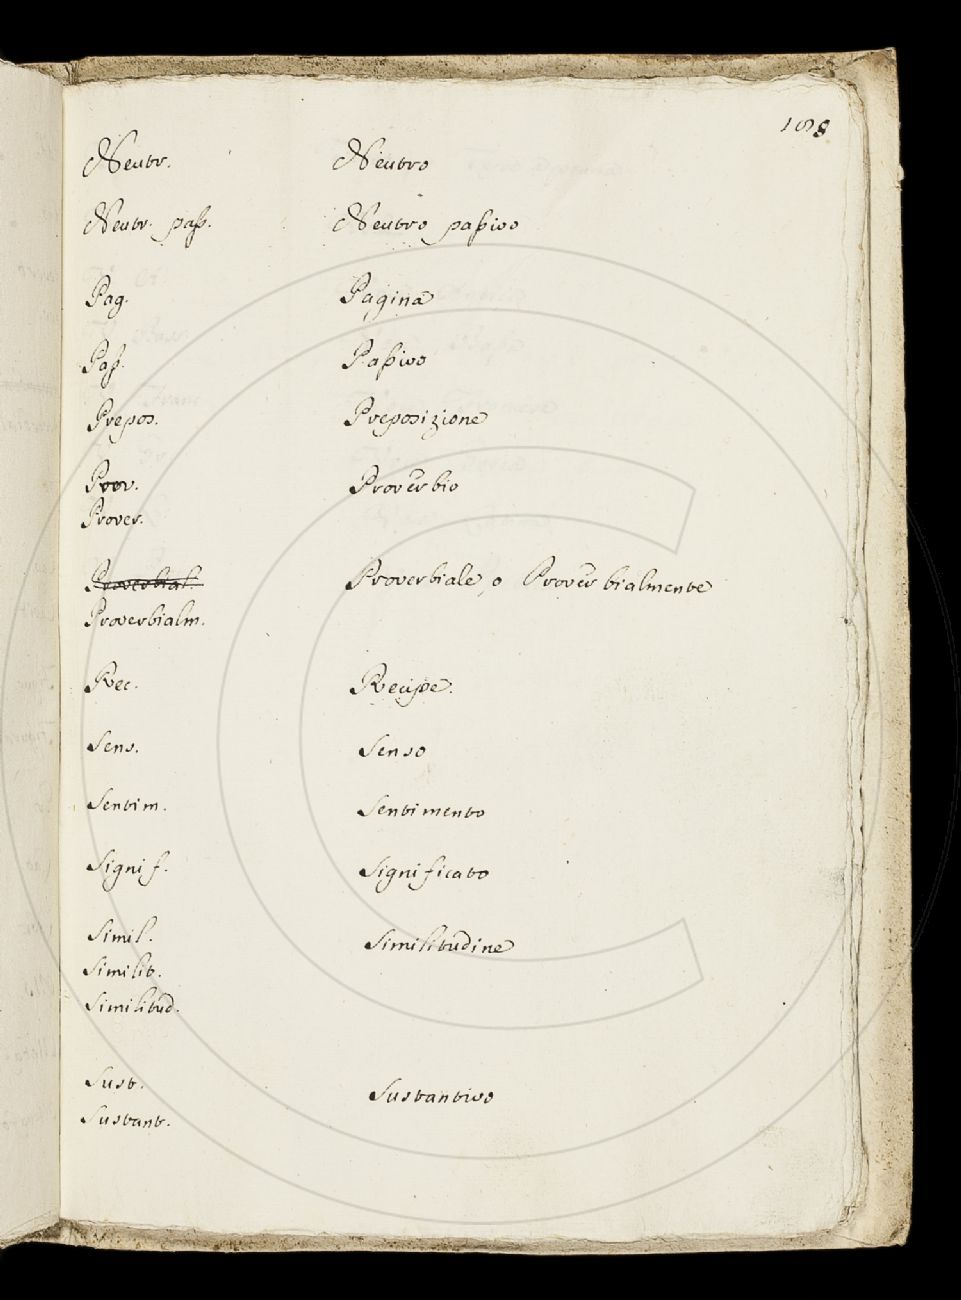 188
Neutr. Neutro
Neutr. paß. Neutro paßivo
Pag. Pagina
Paß. Paßivo
Prepos. Preposizione
Prov. Proverbio
Prover.
Proverbial. Proverbiale, o Proverbialmente
Proverbialm.
Rec. Recipe.
Sens. Senso
Sentim. Sentimento
Signif. Significato
Simil. Similitudine
Similit.
Similitud.
Sust. Sustantivo
Sustant.